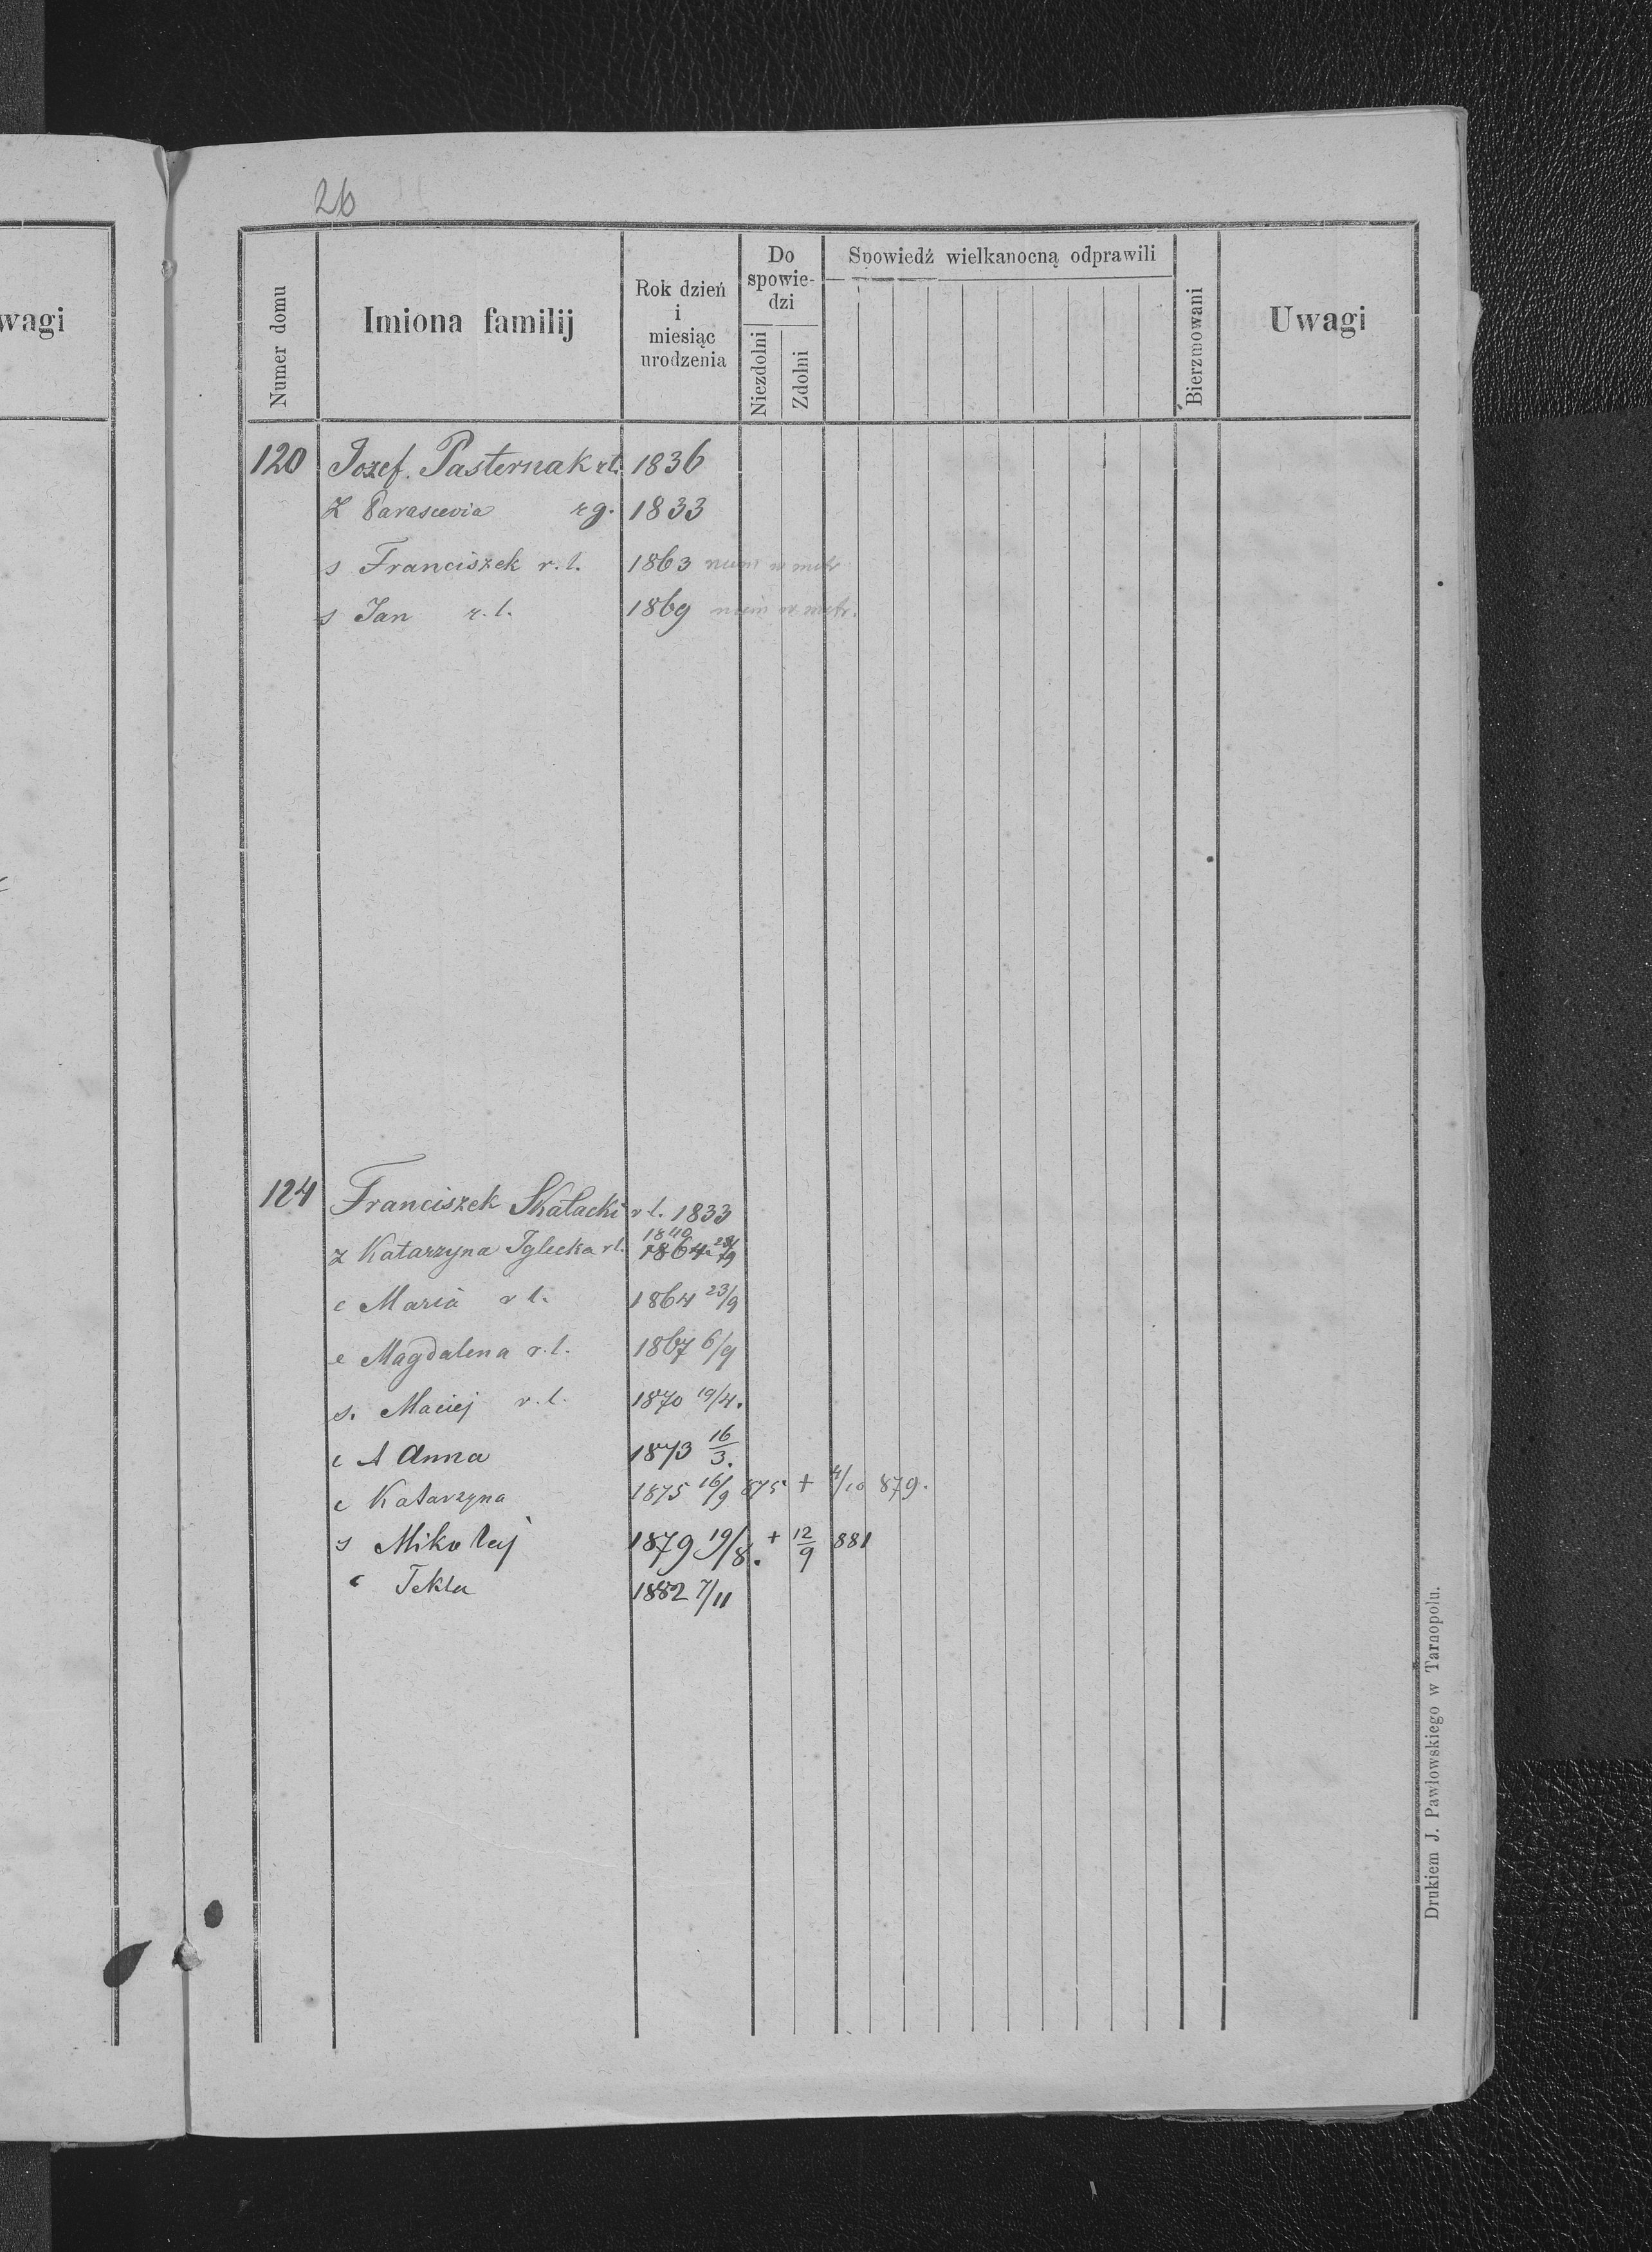 wagi
26
Numer domu
Imiona familij
Rok dzień
i
miesiąc
urodzenia
Do
spowie-
dzi
Niezdolni
Zdolni
Spowiedź wielkanocną odprawili
Bierzmowani
Uwagi
120 Jozef. Pasternak rl. 1836
Z Parascevia rg. 1833
s Franciszek r. l. 1863 niem w metr
s Jan r. l. 1869 niem w metr.
124 Franciszek Skałacki r l. 1833
1840
z Katarzyna Iglecka rl. 1864 23/9
c Maria r l. 1864 23/9
c Magdalena r. l. 1867 6/9
s. Maciej r. l. 1870 19/4.
c A Anna 1873 16/3.
c Katarzyna 1875 16/9 875 + 4/10 879.
s Mikołaj 1879 19/8. + 12/9 881
c Tekla 1882 7/11
Drukiem J. Pawłowskiego w Tarnopolu.